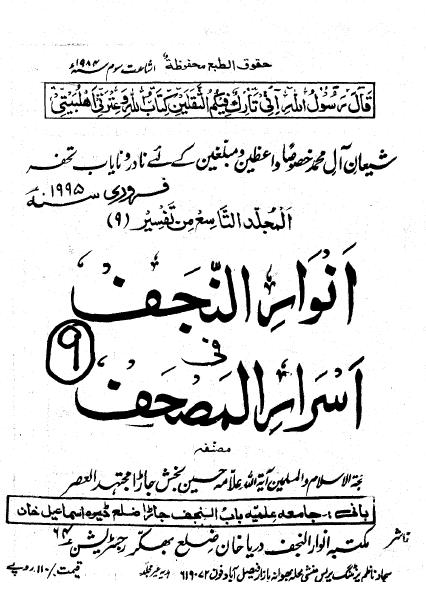 حقوق الطبع محفوظة اشاعت سوم سنہ ۱۹۸۴ء
قَالَ رَسُولُ اللّٰہِ اِنِّی تَارِكٌ فِیْکُمُ الثَّقَلَیْنِ کِتَابَ اللّٰہِ وَعِتْرَتِی اَھْلَبَیْتِی
شیعان آل محمد خصوصاً واعظین و مبلغین کے لئے نادر و نایاب تحفہ
فروری سنہ ۱۹۹۵ء
المجلد التاسع من تفسیر (۹)
اَنْوَارِ النَّجَف
فی
۹
اَسْرَارِ المَصْحَف
مصنفہ
حجۃ الاسلام والمسلمین آیۃ اللہ علامہ حسین بخش جاڑا مجتہد العصر
بانی: جامعہ علمیہ باب النجف جاڑا ضلع ڈیرہ اسماعیل خان
ناشر
مکتبہ انوار النجف دریا خان ضلع بھکر رجسٹریشن ۶۴
پرنٹنگ پریس بھوانہ بازار فیصل آباد فون ۶۱۹۰۷۲ قیمت -/۱۱۰ روپے